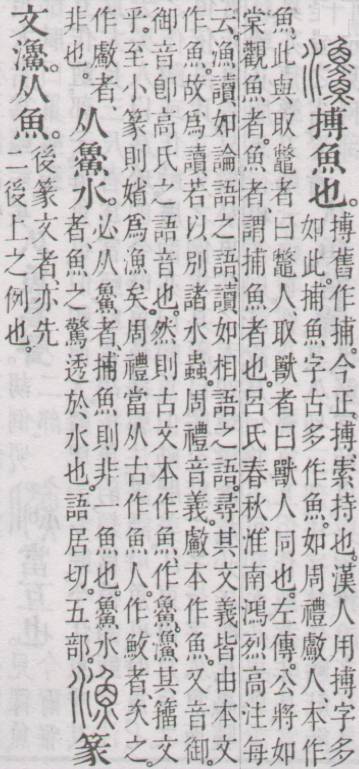 𤅥搏魚也。搏舊作捕。今正。搏、索持也。漢人用搏字多
如此。捕魚字古多作魚。如周禮䱷人本作
魚。此與取鼈者曰鼈人、取獸者曰獸人同也。左傳。公將如
棠觀魚者。魚者、謂捕魚者也。呂氏春秋淮南鴻烈高注每
云。漁讀如論語之語。讀如相語之語。尋其文義。皆由本文
作魚。故爲讀若以別諸水蟲。周禮音義。䱷本作魚。又音御。
御音卽高氏之語音也。然則古文本作魚。作䲆、𤅥其籒文
乎。至小篆則媘爲漁矣。周禮當从古作魚人。作魰者、次之。
作䱷者、
非也。
从䲆水。必从䲆者、捕魚則非一魚也。䲆水
者、魚之驚透於水也。語居切。五部。
漁篆
文𤅥。从魚。後篆文者、亦先
二後上之例也。